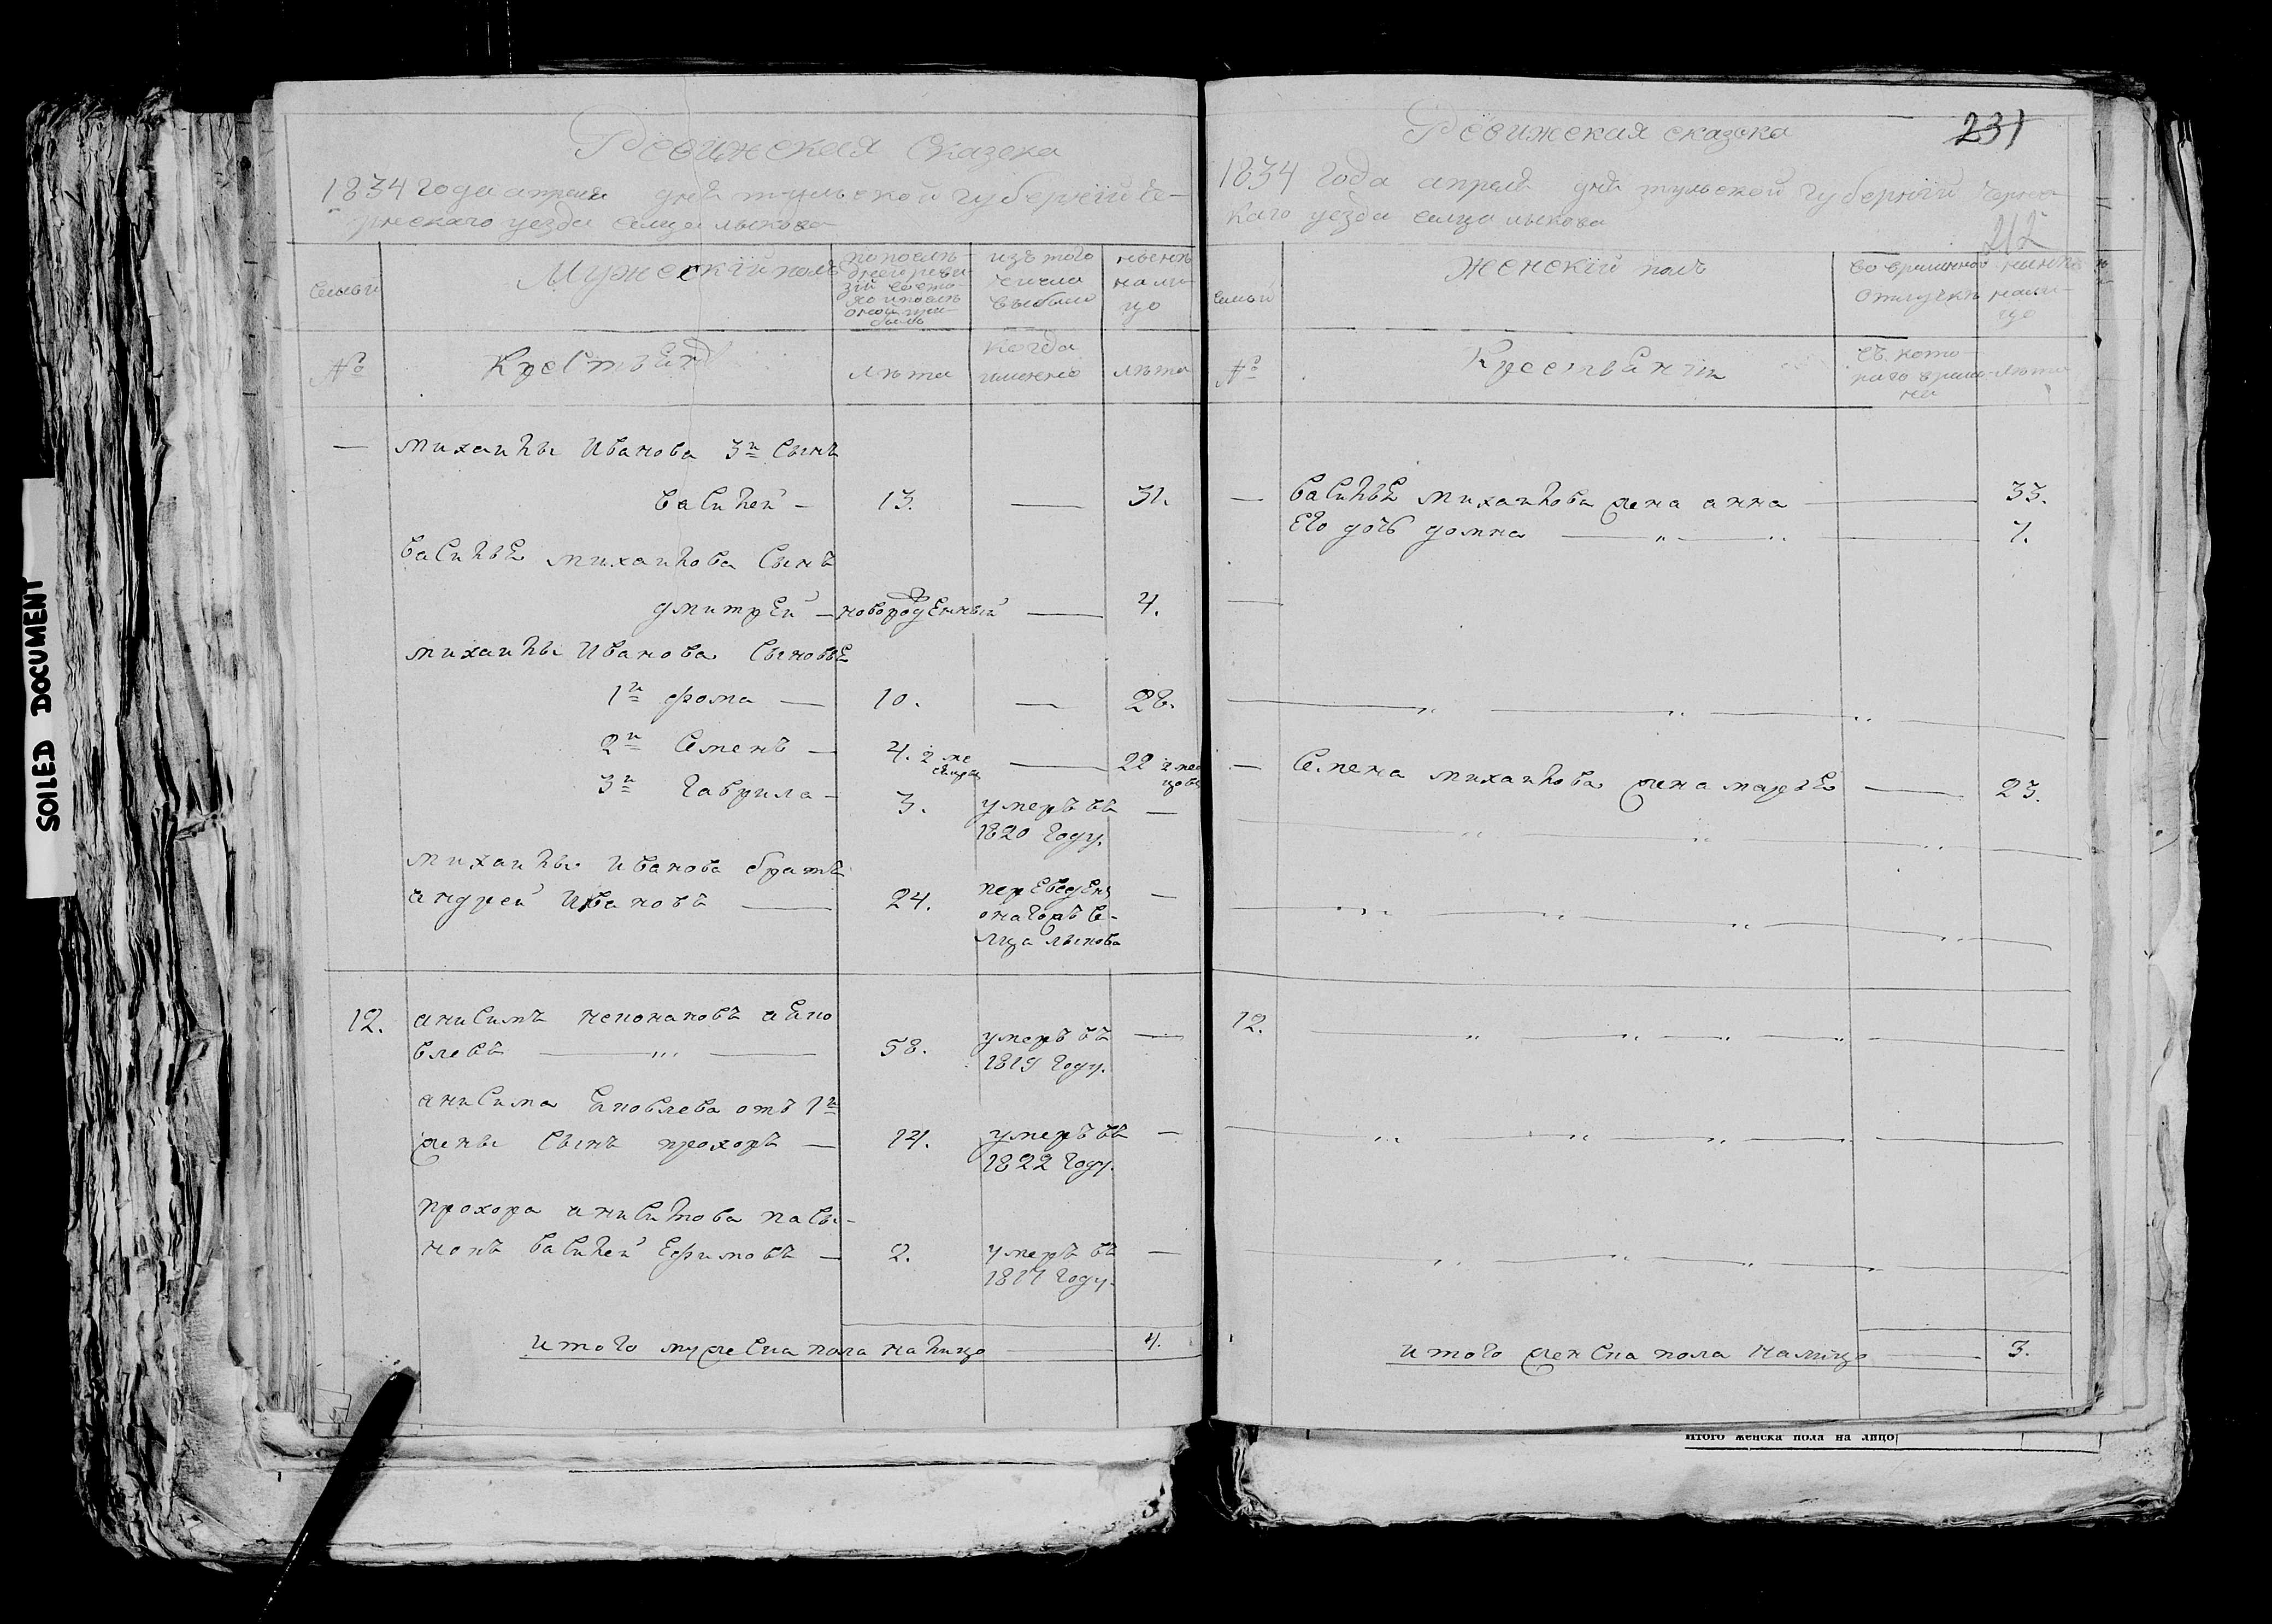 SOILED DOCUMENT
Ревижская сказска
1834 года апреля дня тульской губернїи че-
рнскаго уезда селца лыкова
семьи
Мужескїй полъ
по послѣ-
дней реви-
зїи состо-
яло и послѣ
оной при-
было
изъ того
числа
выбыло
нынѣ
нали-
цо
№
Крестьянѣ
лѣта
когда
именно
лѣта
— михаилы Иванова 3й Сынъ
василей — 13. — 31.
василья михаилова Сынъ
дмитрей — новорожденный — 4.
михаилы Иванова Сыновья
1й фома — 10. — 28.
2й Семенъ — 4. 2 ме
сяца — 22 2 мес
цовъ
3й гаврила — 3. умеръ въ —
1820 году.
михаилы Иванова братъ
андрей Ивановъ — 24. переведен
онагоръ се-
лца лыкова —
12. анисимъ
влевъ — 58. умеръ въ —
1819 году.
анисима яковлева отъ 1й
жены Сынъ прохоръ — 14. умеръ въ —
1822 году.
прохора анисимова пасы-
нокъ василей Ефимовъ — 2. умеръ въ —
1817 году.
итого мужеска пола налицо 4.
231
Ревижская сказка
1834 года апреля дня тульской губернїи чернс-
каго уезда селца лыкова
212
семьи
Женскїй полъ
во временной
отлучкѣ
нынѣ
нали-
цо
№
Крестьянѣ
съ кото-
раго време-
ни
лѣта
— василья михаилова жена анна — 33.
Его дочь домна — 7.
— Семена михаилова жена марья — 23.
12.
итого женска пола налицо 3.
Итого женска пола на лицо